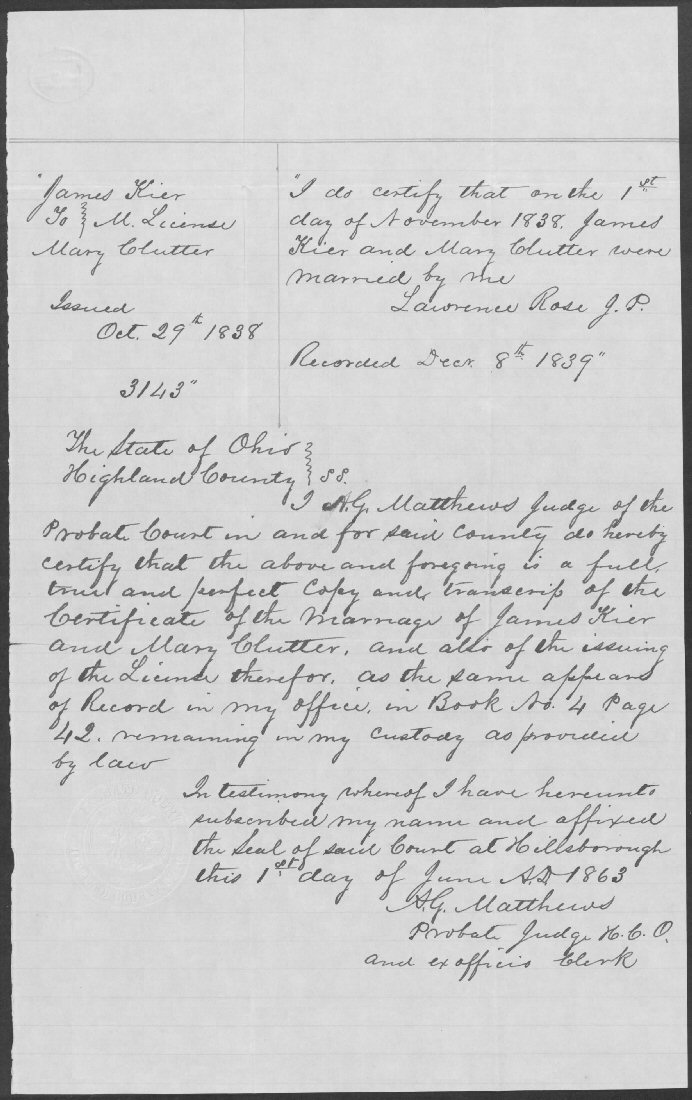 "James Kier
To } M. License
Mary Clutter
Issued
Oct. 29th 1838
3143"
"I do certify that on the 1st
day of November 1838. James
Kier and Mary Clutter were
married by me
Lawrence Rose J. P.
Recorded Decr. 8th 1839"
The State of Ohio }
Highland County } SS.
I A.G. Matthews Judge of the
Probate Court in and for said County do hereby
certify that the above and foregoing is a full,
true and perfect Copy and transcrip of the
Certificate of the Marriage of James Kier
and Mary Clutter, and also of the issuing
of the License therefor, as the same appears
of Record in my office, in Book No. 4 Page
42. remaining in my custody as provided
by law
In testimony whereof I have hereunto
subscribed my name and affixed
the Seal of said Court at Hillsborough
this 1st day of June A.D 1863
A.G. Matthews
Probate Judge H.C.O.
and ex officio Clerk